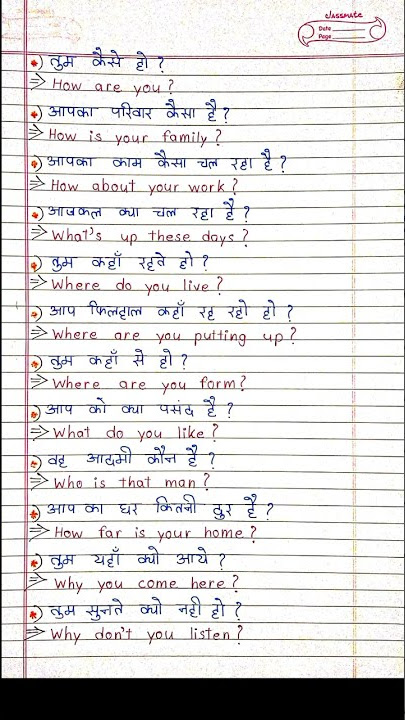 classmate
Date
Page
*) तुम कैसे हो ?
⇒ How are you ?
*) आपका परिवार कैसा है ?
⇒ How is your family ?
*) आपका काम कैसा चल रहा है ?
⇒ How about your work ?
*) आजकल क्या चल रहा है ?
⇒ What's up these days ?
*) तुम कहाँ रहते हो ?
⇒ Where do you live ?
*) आप फिलहाल कहाँ रह रहो हो ?
⇒ Where are you putting up ?
*) तुम कहाँ से हो ?
⇒ Where are you form ?
*) आप को क्या पसंद है ?
⇒ What do you like ?
*) वह आदमी कौन है ?
⇒ Who is that man ?
*) आप का घर कितनी दुर है ?
⇒ How far is your home ?
*) तुम यहाँ क्यो आये ?
⇒ Why you come here ?
*) तुम सुनते क्यो नही हो ?
⇒ Why don't you listen ?